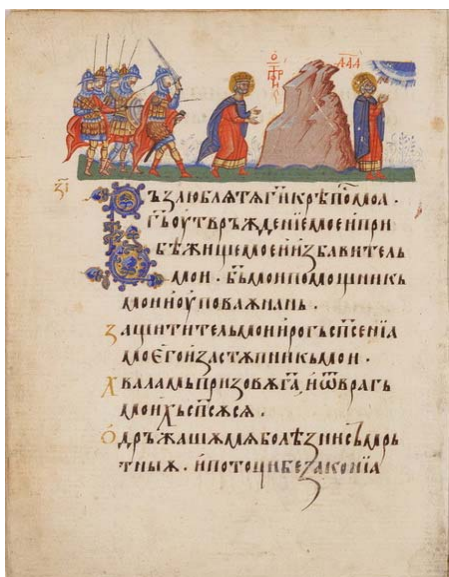 з҃і
Възлюблѧ тѧ г҃и крѣпо моа ·
г҃ь оутвръждение мое и при
бѣжище мое и избавитель
мои · б҃ь мои помощникь
мои и оуповаѫ нань ·
Защитителъ мои и рогь сп҃сеніа
моего и застѫпникь мои ·
Хвалѧ призовѫ г҃а, и ѿ врагь
моихь сп҃сѫсѧ ·
Одръжашѫ мѧ болѣзни сьмрь
тныѫ · и потоци безаконїа